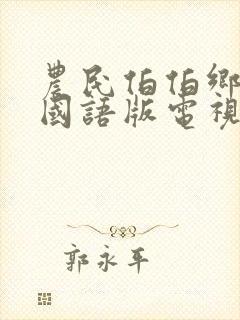 農民伯伯鄉
國語版電視
郭永平